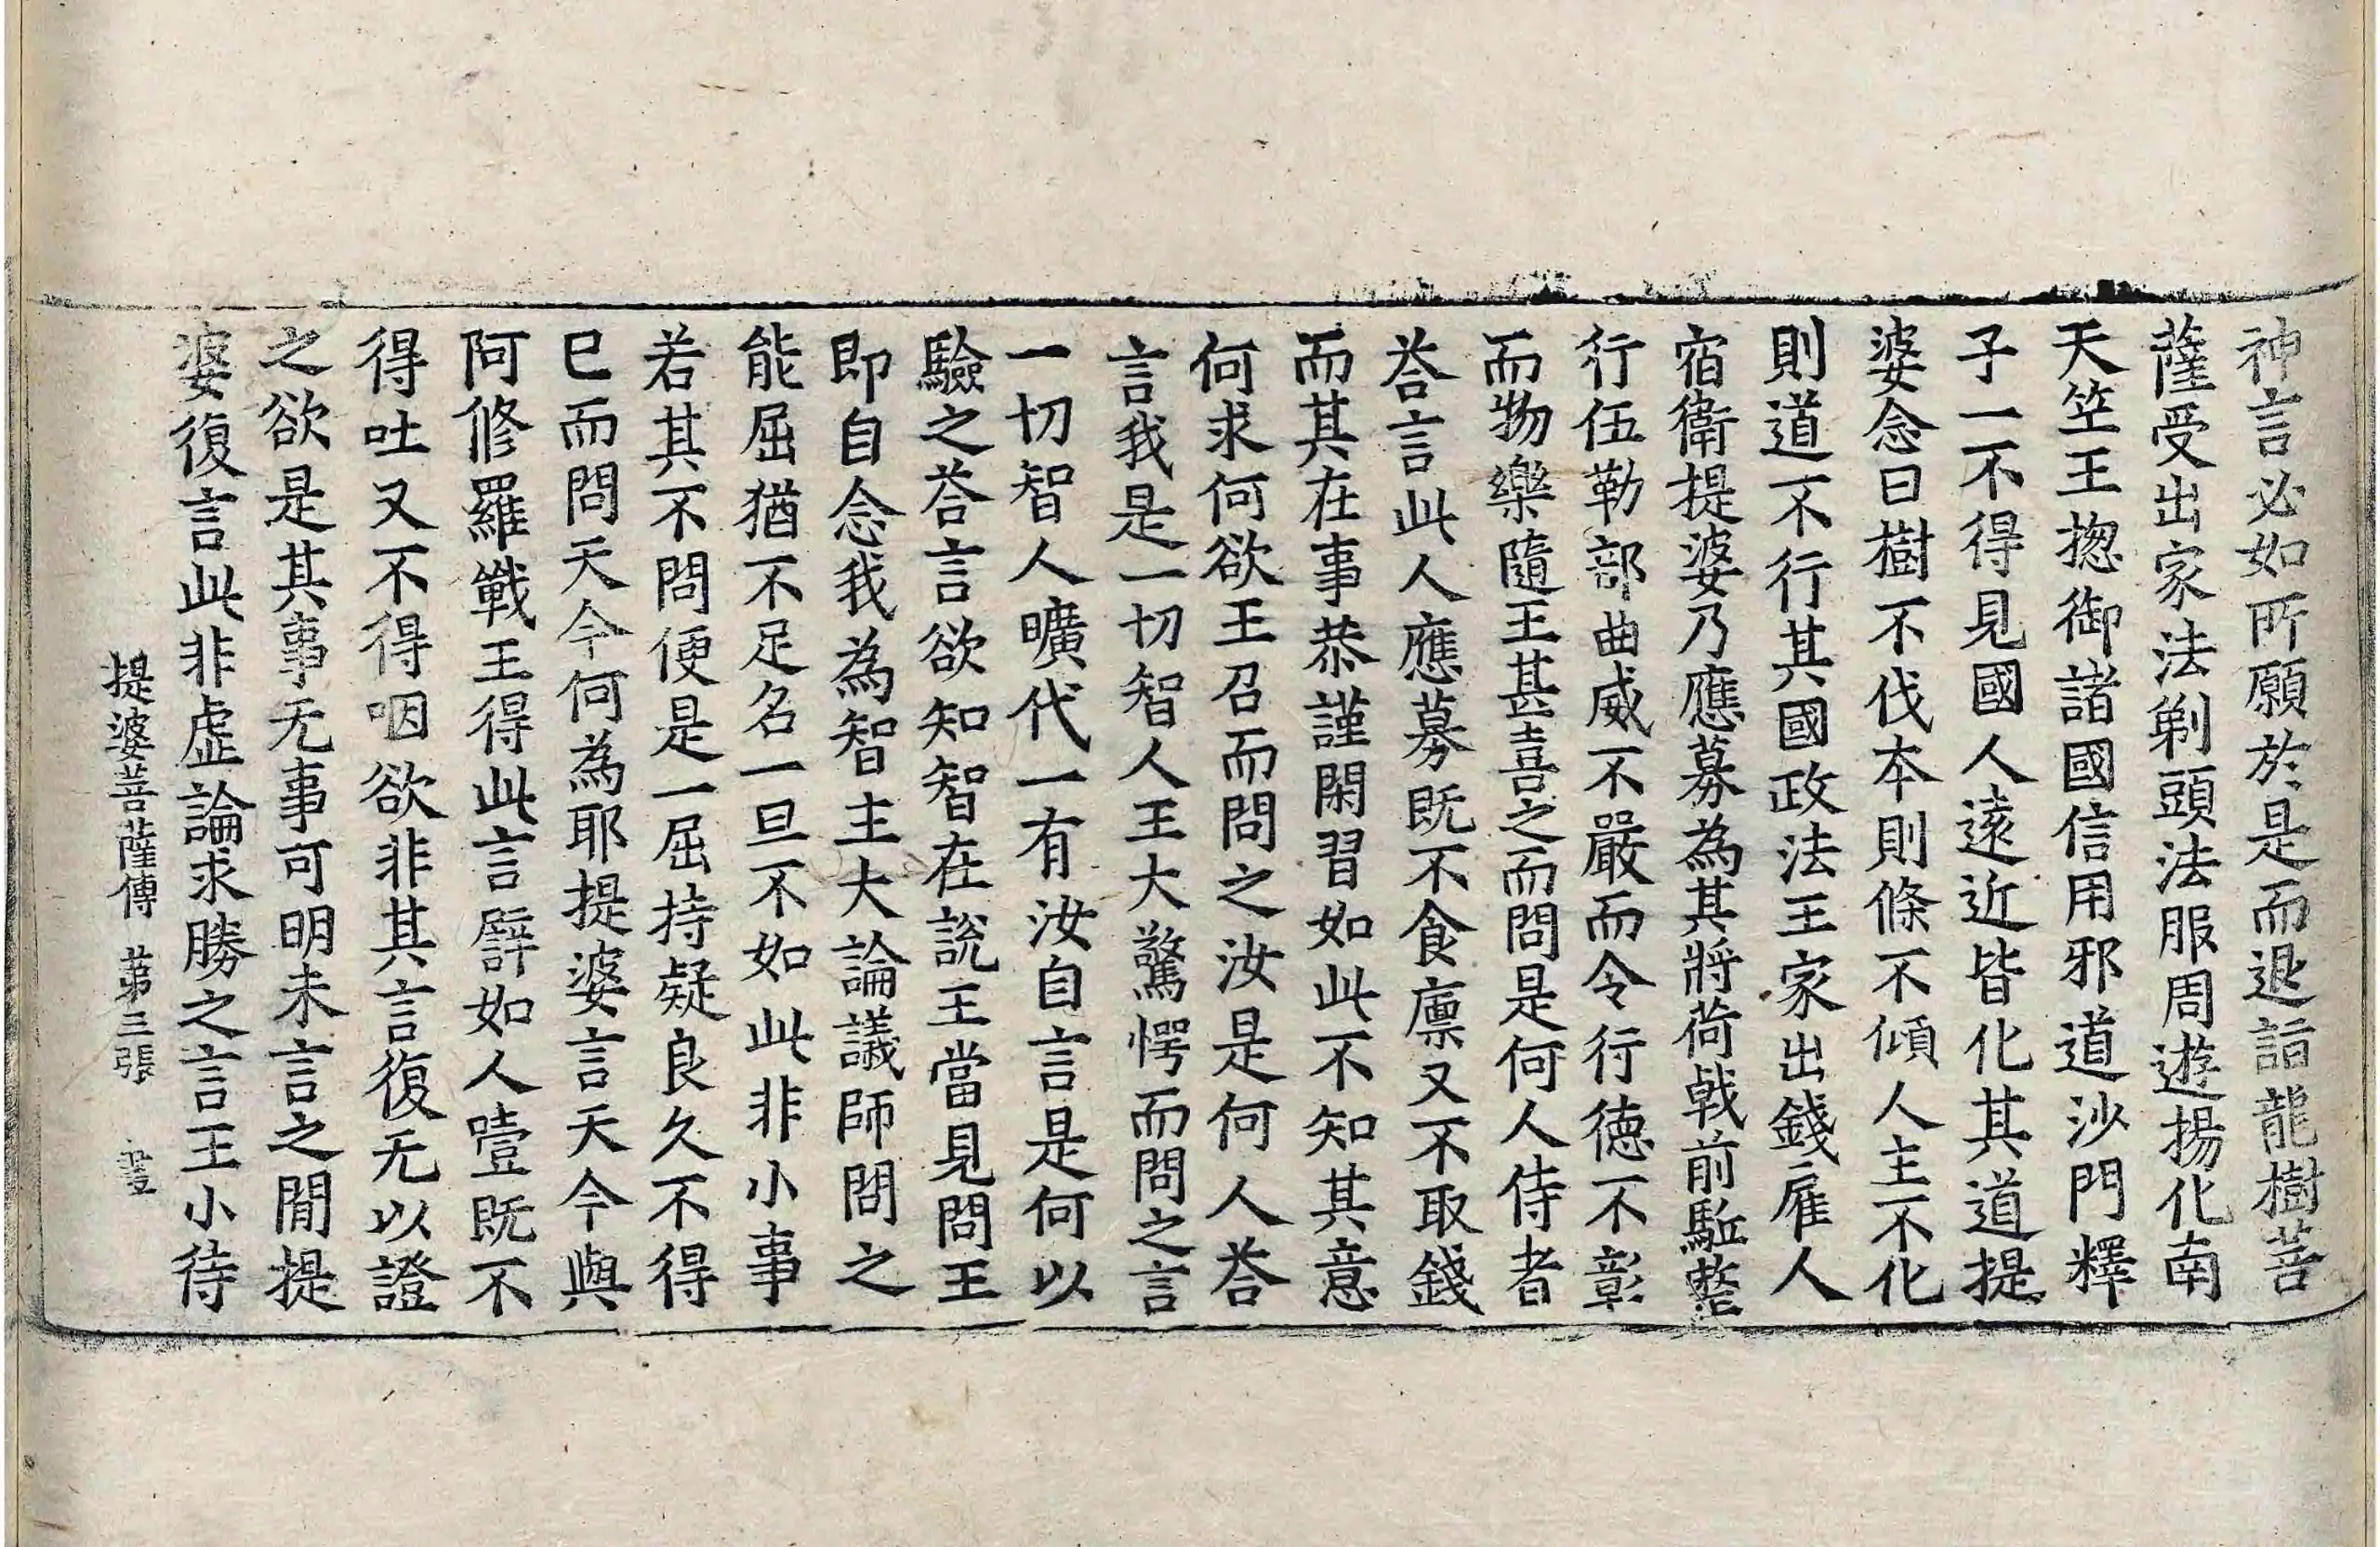 神言必如所願於是而退詣龍樹菩
薩受出家法剃頭法服周遊揚化南
天笁王揔御諸國信用邪道沙門釋
子一不得見國人遠近皆化其道提
婆念曰樹不伐本則條不傾人主不化
則道不行其國政法王家出錢雇人
宿衛提婆乃應募為其將荷戟前驅整
行伍勒部曲威不嚴而令行德不彰
而物樂隨王甚喜之而問是何人侍者
荅言此人應募既不食廩又不取錢
而其在事恭謹閑習如此不知其意
何求何欲王召而問之汝是何人荅
言我是一切智人王大驚愕而問之言
一切智人曠代一有汝自言是何以
驗之荅言欲知智在說王當見問王
即自念我為智主大論議師問之
能屈猶不足名一旦不如此非小事
若其不問便是一屈持疑良久不得
已而問天今何為耶提婆言天今與
阿修羅戰王得此言譬如人噎既不
得吐又不得咽欲非其言復无以證
之欲是其事无事可明未言之間提
婆復言此非虛論求勝之言王小待
提婆菩薩傳 第三張